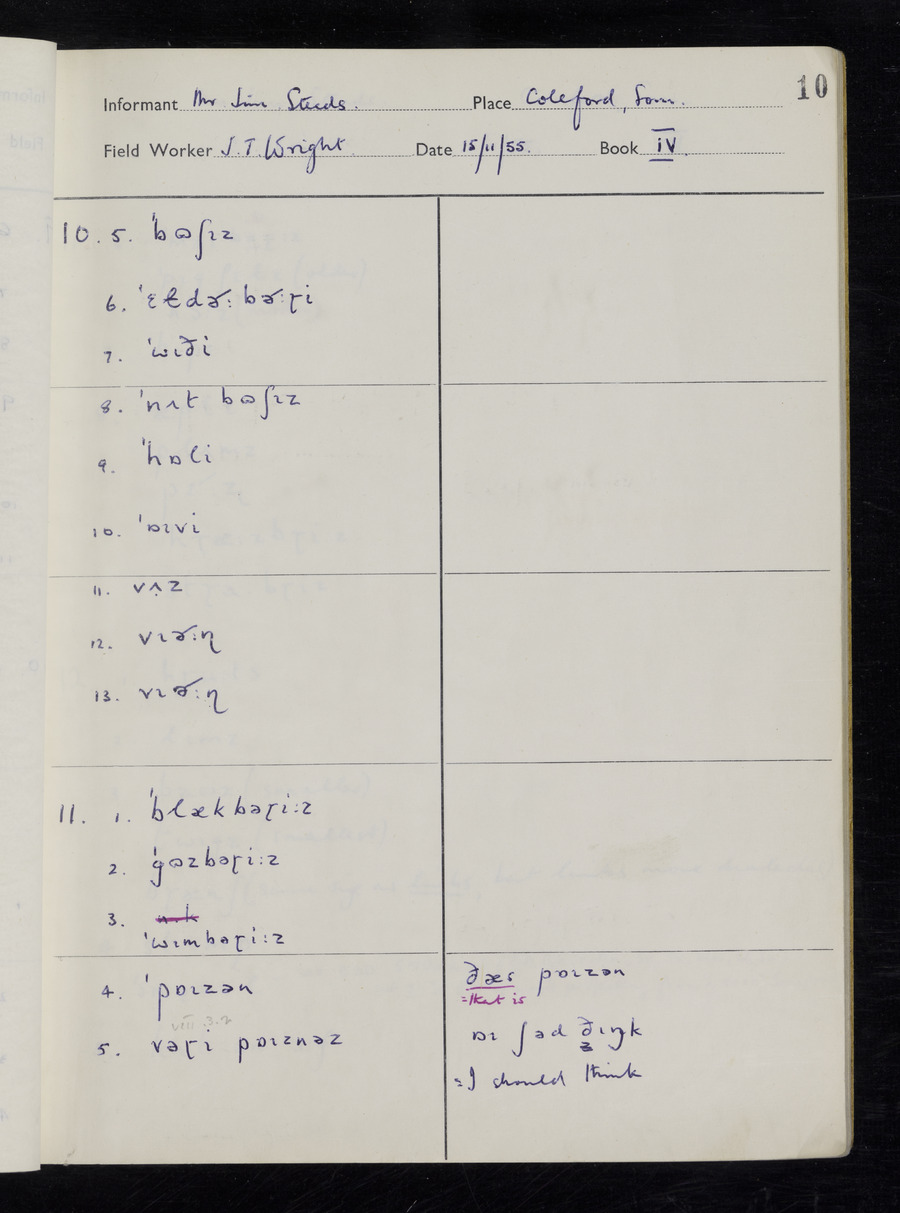 10
Informant Mr Jim Steeds. Place Coleford, Som.
Field Worker J.T. Wright. Date 15/11/55. Book IV
10. 5. ˈbɷʃɪz
6. ˈɛɫdɚ:bɚ:ɽi
7. ˈwɪði
8. ˈnʌt bɷʃɪz
9. ˈhɒli
10. ˈɒɪvi
11. vʌz
12. vɪɚ:ɳ
13. vɪɚ:ɳ
11. 1. ˈblækbəɽi:z
2. ˈgɷzbəɽi:z
3.
ˈwɪmbəɽi:z
4. ˈpɒɪzən
ðæs pɒɪzən
=that is
VIII 3.2
5. vəɽi pɒɪznəz
ɒɪ ʃəd ðɪŋk
=I should think